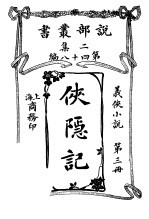 說部叢書
二集
第四十八編
義俠小說 第三冊
俠隱記
上海商務印